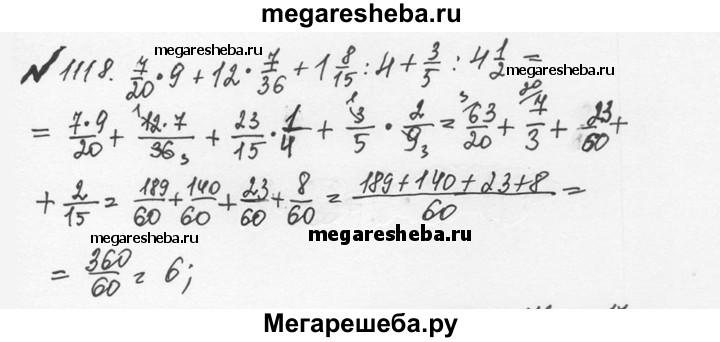 megaresheba.ru
megaresheba.ru
№ 1118. 7/20 · 9 + 12 · 7/36 + 1 8/15 : 4 + 3/5 : 4 1/2 =
megaresheba.ru
= 7·9/20 + 12·7/36 + 23/15 · 1/4 + 3/5 · 2/9 = 63/20 + 7/3 + 23/60 +
+ 2/15 = 189/60 + 140/60 + 23/60 + 8/60 = 189+140+23+8/60 =
megaresheba.ru
megaresheba.ru
= 360/60 = 6;
Мегарешеба.ру